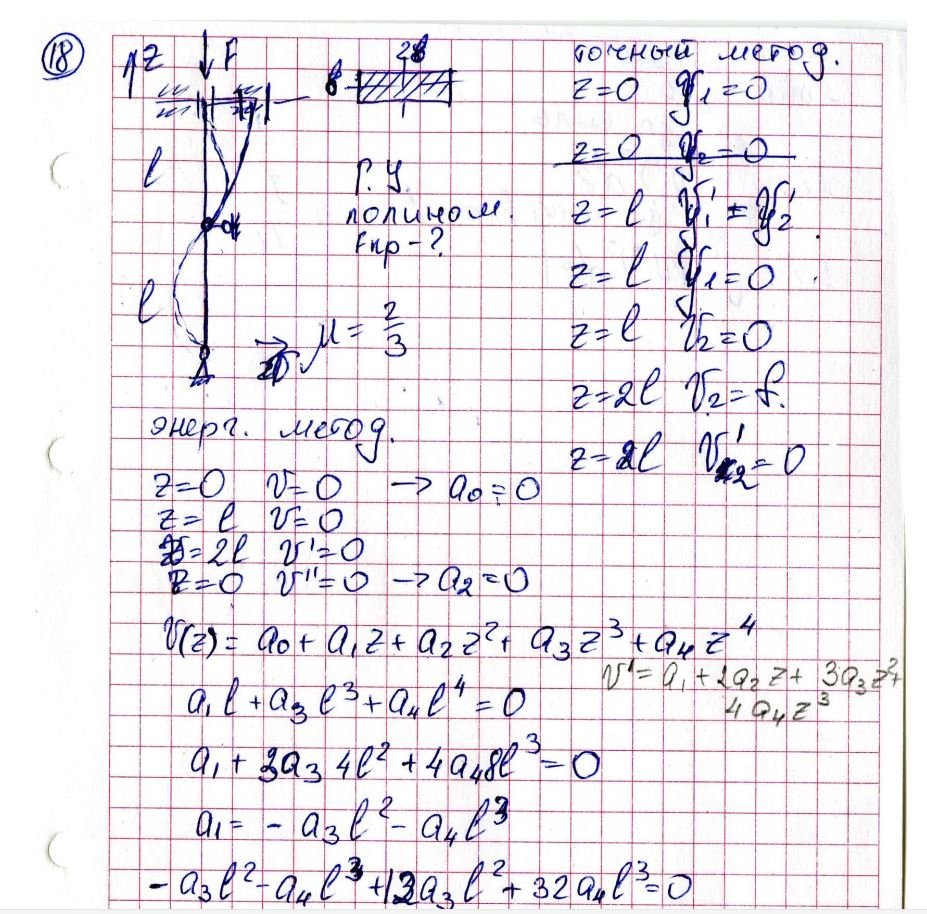 18
z
F
2b
b
точный метод.
z=0 y₁=0
z=0 y₂=0
z=l y₁'=y₂'
z=l y₁=0
z=l v₂=0
z=2l v₂=f.
z=2l v₂'=0
l
Г.У
полином.
Fкр-?
l
μ=2/3
v
энерг. метод.
z=0 v=0 → a₀=0
z=l v=0
z=2l v'=0
z=0 v''=0 → a₂=0
v(z)= a₀+a₁z+a₂z²+a₃z³+a₄z⁴
v'=a₁+2a₂z+3a₃z²+
4a₄z³
a₁l+a₃l³+a₄l⁴=0
a₁+3a₃4l²+4a₄8l³=0
a₁=-a₃l²-a₄l³
-a₃l²-a₄l³+12a₃l²+32a₄l³=0